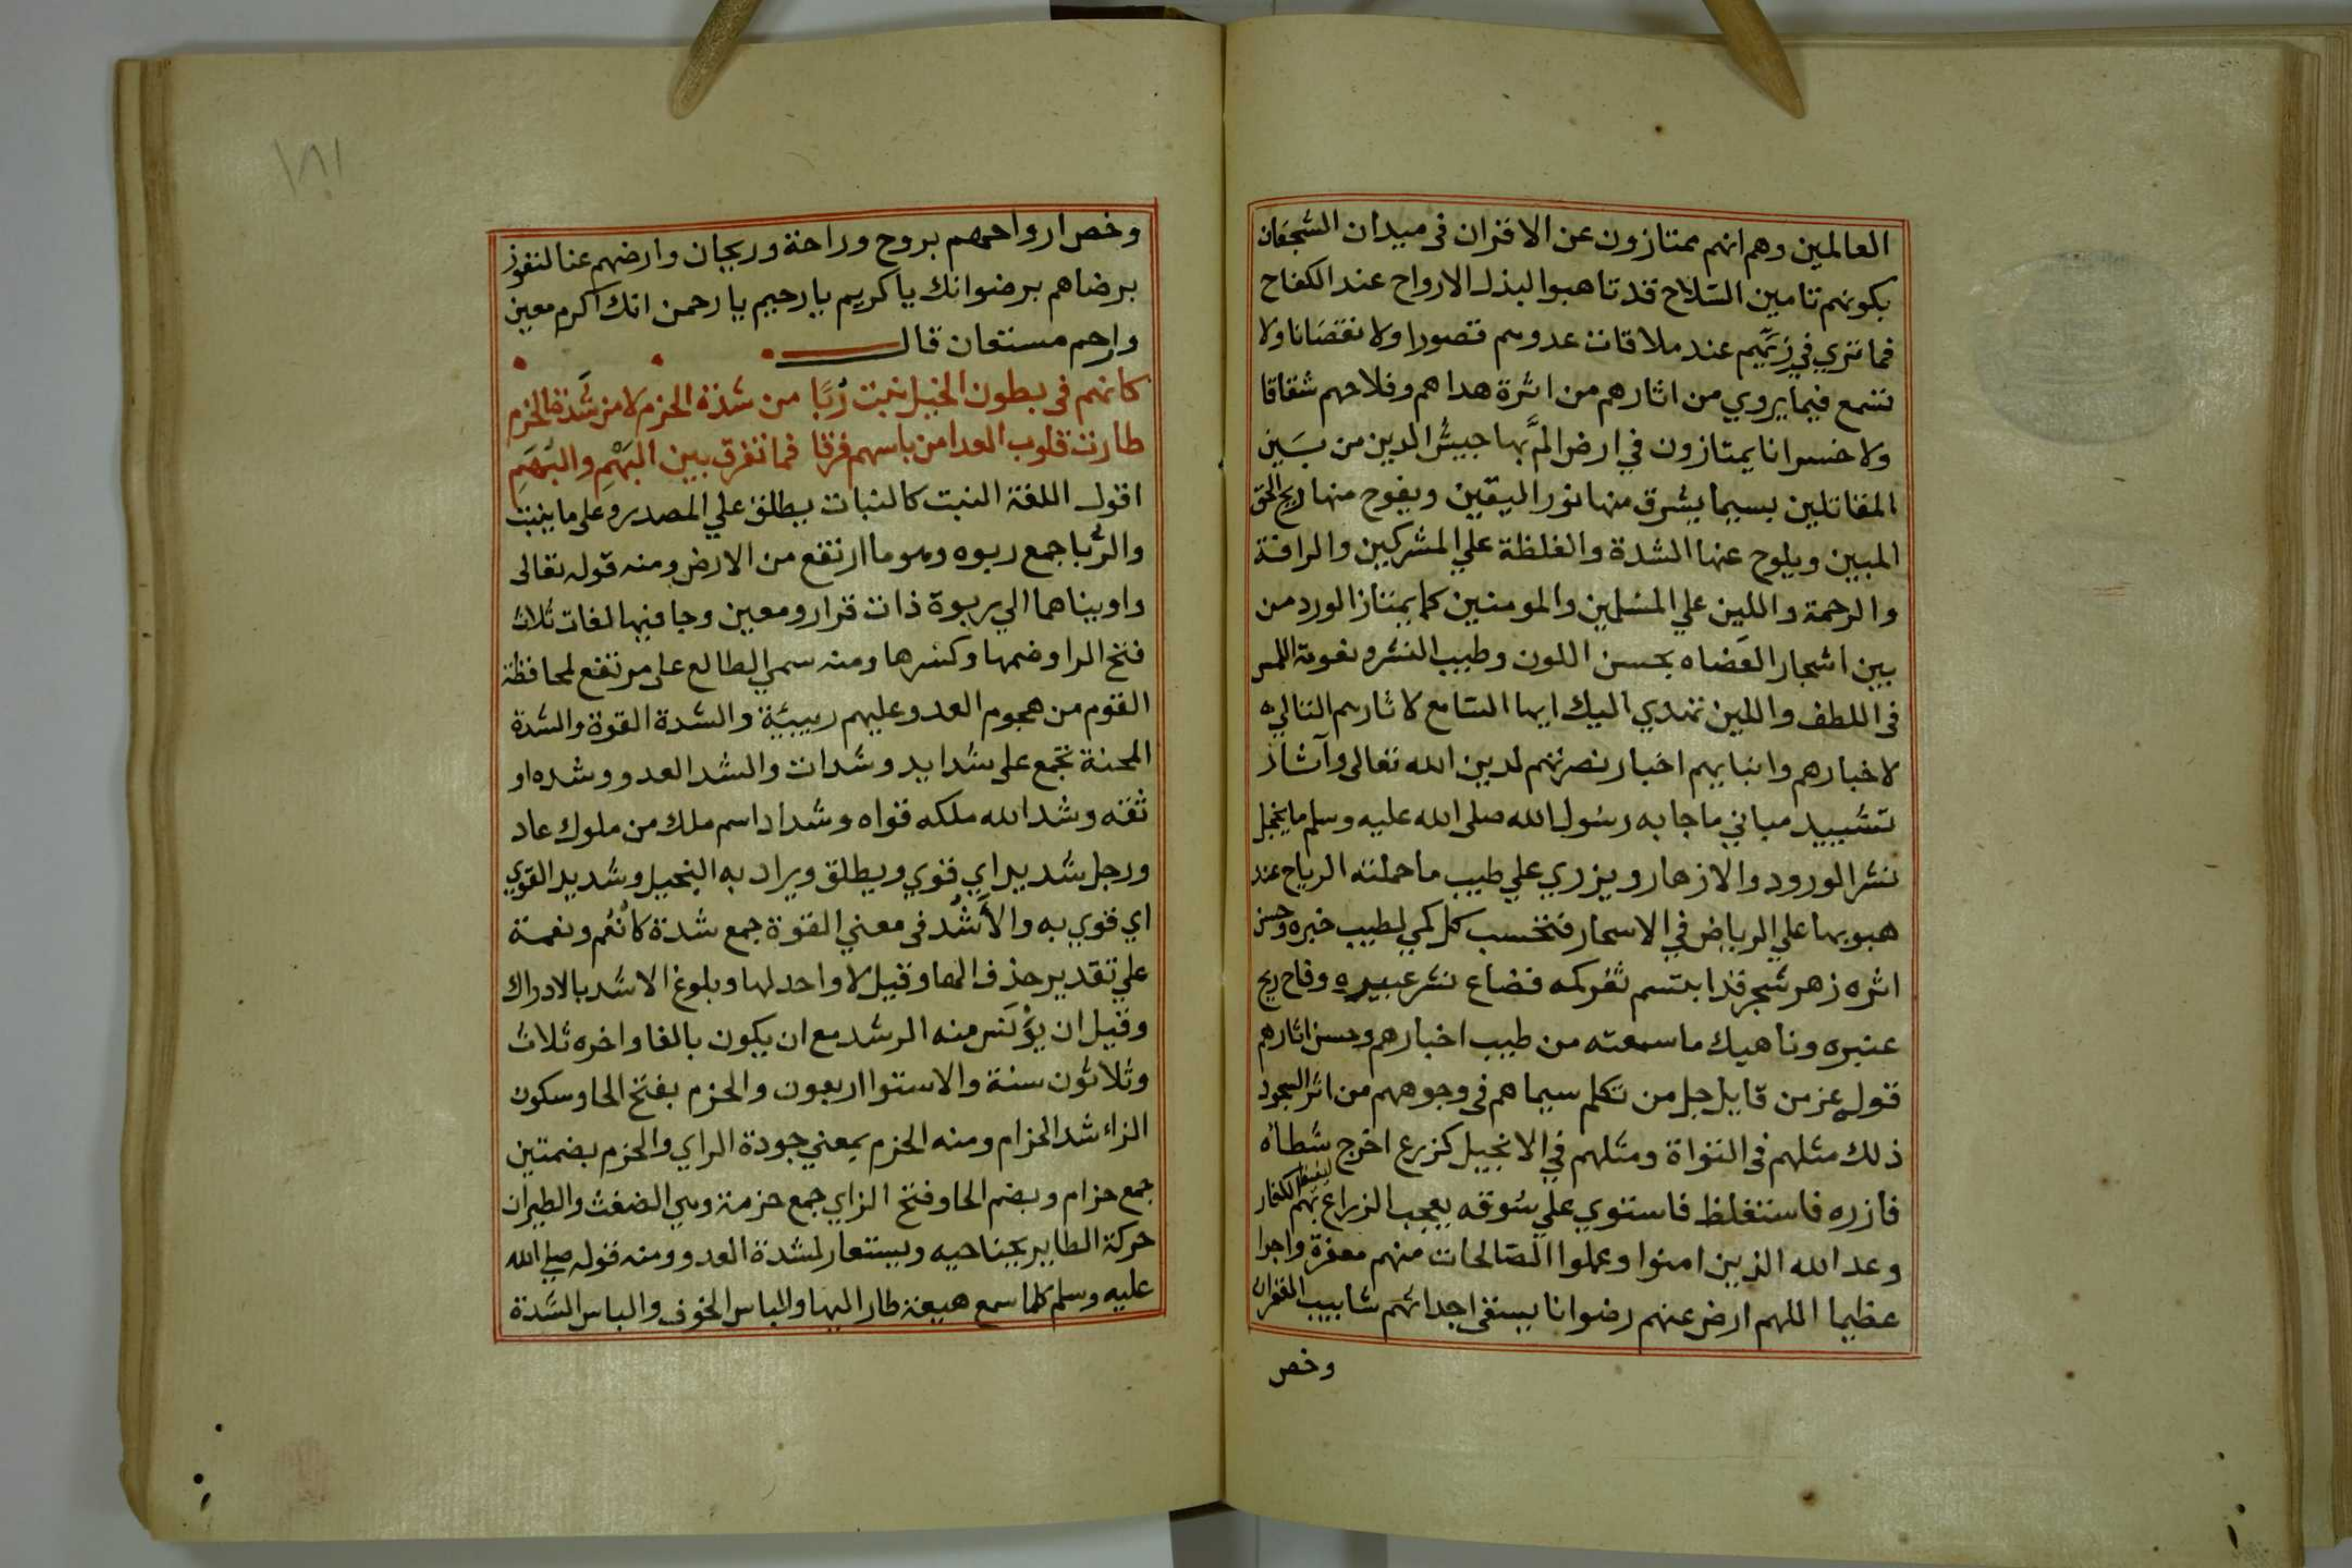 العالمين وهم انهم ممتازون عن الاقران فى ميدان الشجعان
بكونهم تامين السلاح قد تاهبوا لبذل الارواح عند الكفاح
فما تري في زيّهم عند ملاقات عدوهم قصورا ولا نقصانا ولا
تسمع فيما يروي من اثارهم من اثرة هداهم وفلاحهم شقاقا
ولا خسرانا يمتازون في ارض المّ بها جيش الدين من بين
المقاتلين بسيما يشرق منها نور اليقين ويفوح منها ريح الحق
المبين ويلوح عنها الشدة والغلظة علي المشركين والرافة
والرحمة واللين علي المسلمين والمومنين كما يمتاز الورد من
بين اشجار العضاه بحسن اللون وطيب النشر ونعومة اللمس
فى اللطف واللين تهدي اليك ايها السامع لاثارهم التالي
لاخبارهم وانبايهم اخبار نصرتهم لدين الله تعالى وآثار
تشييد مباني ما جا به رسول الله صلى الله عليه وسلم ما يخجل
نشر الورود والازهار ويزري علي طيب ما حملته الرياح عند
هبوبها علي الرياض في الاسحار فتحسب كل كمي لطيب خبره وحسن
اثره زهر شجر قد ابتسم ثغر كمه فضاع نشر عبيره وفاح ريح
عنبره وناهيك ما سمعته من طيب اخبارهم وحسن اثارهم
قول عز من قايل جل من تكلم سيماهم فى وجوههم من اثر السجود
ذلك مثلهم فى التوراة ومثلهم في الانجيل كزرع اخرج شطأه
فازره فاستغلظ فاستوي علي سوقه يعجب الزراع ليغيظ بهم الكفار
وعد الله الذين امنوا وعملوا الصالحات منهم مغفرة واجرا
عظيما اللهم ارض عنهم رضوانا يسقى اجداثهم شابيب الغفران
وخص
١٨١
وخص ارواحهم بروح وراحة وريحان وارضهم عنا لنفوز
برضاهم برضوانك يا كريم يا رحيم يا رحمن انك اكرم معين
وارحم مستعان قال
كانهم فى بطون الخيل نبت رُبًا من شدة الحزم لا من شَدة الحزم
طارت قلوب العدا من باسهم فرقا فما تفرق بين البَهْمِ والبُهَمِ
اقول اللغة النبت كالنبات يطلق علي المصدر وعلى ما ينبت
والرُّبا جمع ربوه وهو ما ارتفع من الارض ومنه قوله تعالى
واويناهما الي ربوة ذات قرار ومعين وجا فيها لغات ثلاث
فتح الرا وضمها وكسرها ومنه سمي الطالع على مرتفع لمحافظة
القوم من هجوم العدو عليهم ربيئة والشدة القوة والشدة
المحنة تجمع على شدايد وشدات والشد العدو وشده او
ثقه وشد الله ملكه قواه وشداد اسم ملك من ملوك عاد
ورجل شديد اي قوي ويطلق ويراد به البخيل وشديد القوي
اي قوي به والأَشُد فى معني القوة جمع شدة كانُعم ونعمة
علي تقدير حذف الها وقيل لا واحد لها وبلوغ الاشد بالادراك
وقيل ان يؤنس منه الرشد مع ان يكون بالغا واخره ثلاث
وثلاثون سنة والاستوا اربعون والحزم بفتح الحا وسكون
الزاء شد الحزام ومنه الحزم بمعني جودة الراي والحزم بضمتين
جمع حزام وبضم الحا وفتح الزاي جمع حزمة وهي الضغث والطيران
حركة الطاير بجناحيه ويستعار لشدة العدو ومنه قوله صلي الله
عليه وسلم كلما سمع هيعة طار اليها والباس الخوف والباس الشدة